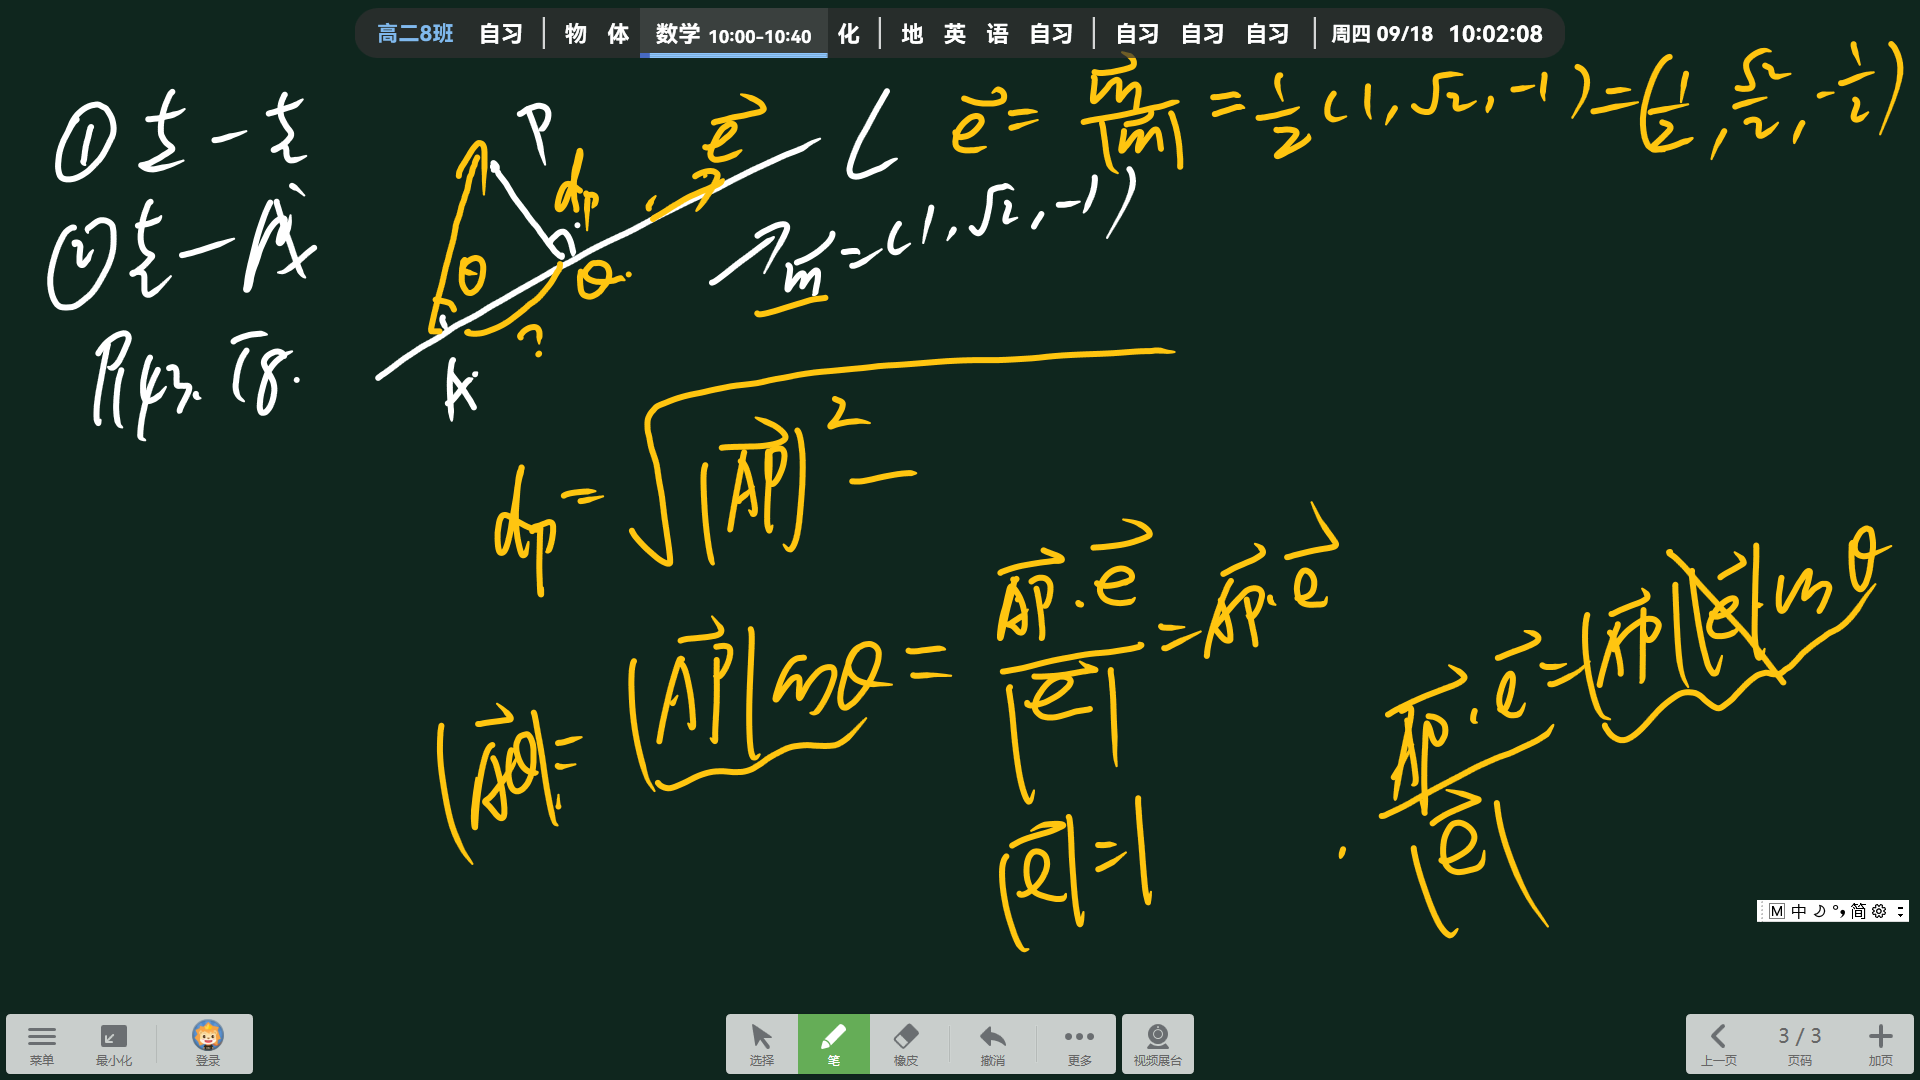 高二8班 自习 | 物 体 数学 10:00-10:40 化 | 地 英 语 自习 | 自习 自习 自习 | 周四 09/18 10:02:08
① 点-点
② 点-
P143. T8.
P
dp
θ
Q
?
A
e⃗
L
m⃗=(1,√2,-1)
e⃗ = m⃗/|m⃗| = 1/2(1,√2,-1)=(1/2,√2/2,-1/2)
dp=√|AP⃗|² -
|AQ⃗|= |AP⃗|cosθ = AP⃗·e⃗/|e⃗| = AP⃗·e⃗
|e⃗|=1
AP⃗·e⃗=|AP⃗||e⃗|cosθ
|e⃗|
M 中 简
菜单 最小化 登录 选择 笔 橡皮 撤消 更多 视频展台 上一页 3 / 3 页码 加页